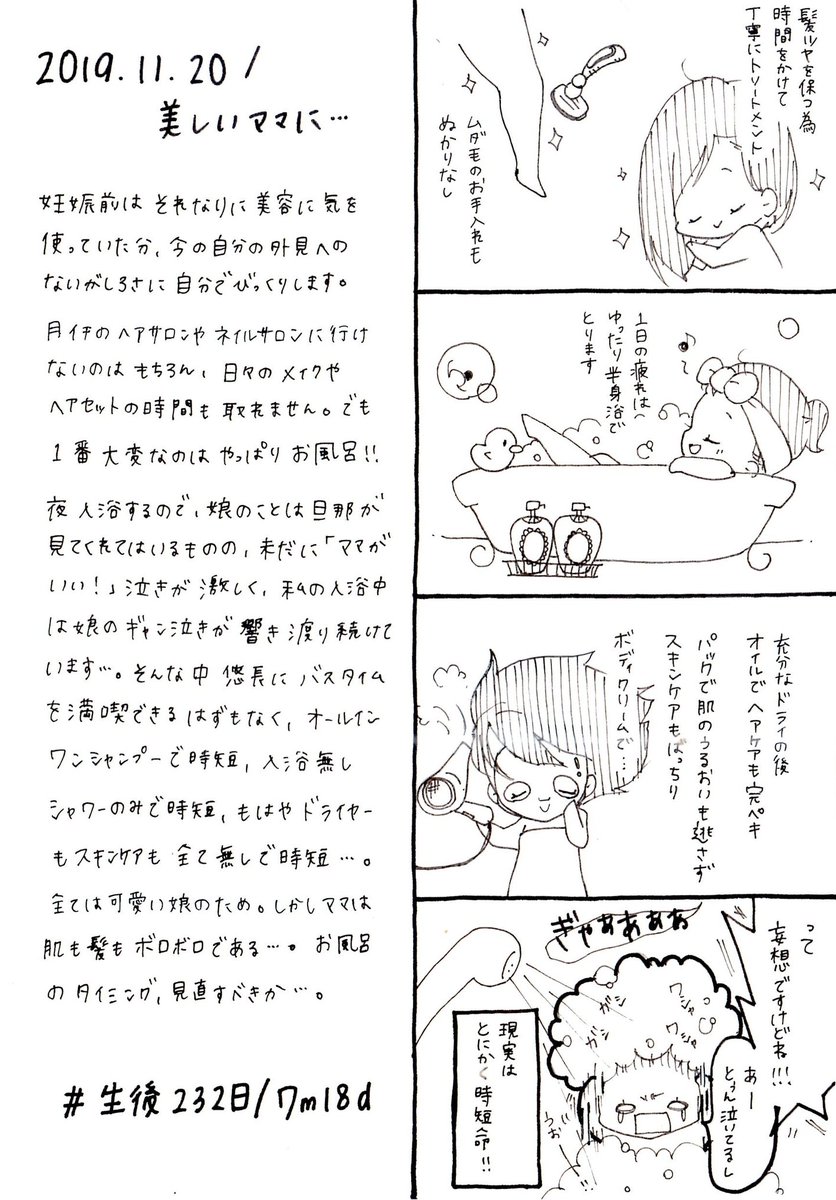 2019.11.20/
美しいママに…
妊娠前は それなりに 美容に 気を
使っていた分、今の自分の外見への
ないがしろさに 自分でびっくりします。
月イチの ヘアサロンや ネイルサロンに 行け
ないのは もちろん、日々の メイクや
ヘアセットの 時間も 取れません。でも
1番 大変なのは やっぱり お風呂!!
夜 入浴するので、娘のことは 旦那が
見てくれてはいるものの、未だに「ママが
いい!」泣きが 激しく、私の入浴中
は娘の ギャン泣きが 響き 渡り 続けて
います…。そんな中 悠長に バスタイム
を満喫できる はずもなく、オールイン
ワンシャンプーで時短、入浴無し
シャワーのみで 時短、もはや ドライヤー
も スキンケアも 全て 無しで 時短…。
全ては可愛い娘のため。しかしママは
肌も 髪も ボロボロである…。お風呂
の タイミング、見直すべきか…。
#生後232日/7m18d
髪ツヤを保つ為
時間をかけて
丁寧にトリートメント
ムダ毛のお手入れも
ぬかりなし
1日の疲れは
ゆったり半身浴で
とります
充分なドライの後
オイルでヘアケアも完ペキ
パックで肌のうるおいも逃さず
スキンケアもばっちり
ボディクリームで…
って
妄想ですけどね!!!
あー
とぅん泣いてるし
ぎゃあああああ
ワシャ
ワシャ
ガシ
ガシ
うお
現実は
とにかく時短命!!